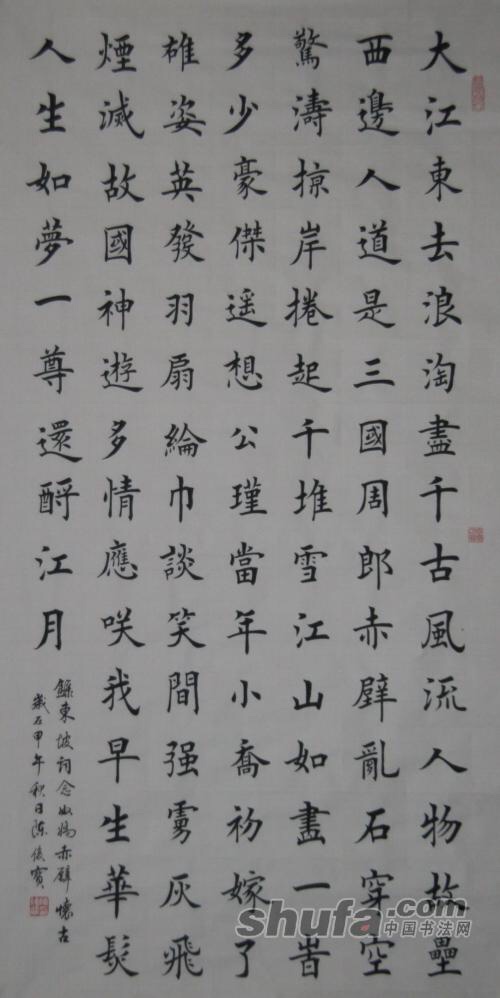 大江東去浪淘盡千古風流人物故壘
西邊人道是三國周郎赤壁亂石穿空
驚濤掠岸捲起千堆雪江山如畫一旹
多少豪傑遥想公瑾當年小喬初嫁了
雄姿英發羽扇綸巾談笑間强虜灰飛
煙滅故國神遊多情應咲我早生華髮
人生如夢一尊還酹江月
録東坡詞念奴嬌赤壁懷古
歲在甲午秋日陳寶
shufa.com
中国书法网